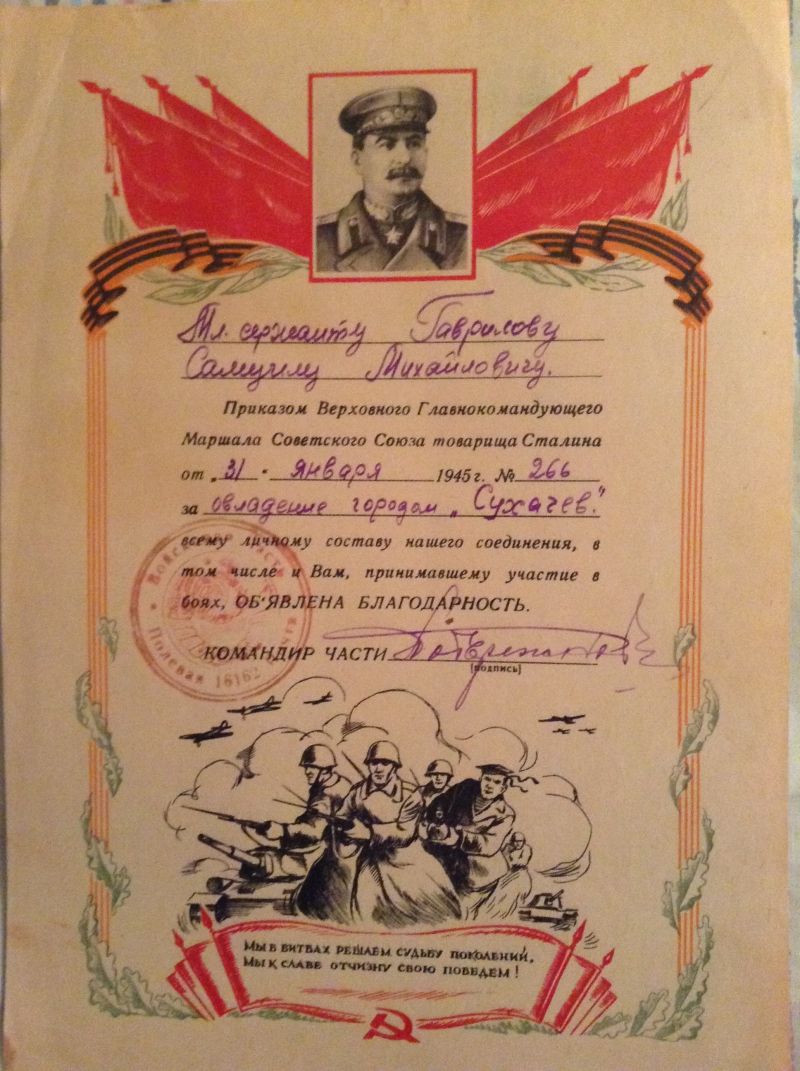 Мл. сержанту Гаврилову
Самуилу Михайловичу.
Приказом Верховного Главнокомандующего
Маршала Советского Союза товарища Сталина
от „31 " января 1945 г. № 266
за овладение городом „Сухачев".
всему личному составу нашего соединения, в
том числе и Вам, принимавшему участие в
боях, ОБ'ЯВЛЕНА БЛАГОДАРНОСТЬ.
КОМАНДИР ЧАСТИ
(подпись)
Полевая 16162
МЫ В БИТВАХ РЕШАЕМ СУДЬБУ ПОКОЛЕНИЙ,
МЫ К СЛАВЕ ОТЧИЗНУ СВОЮ ПОВЕДЕМ!